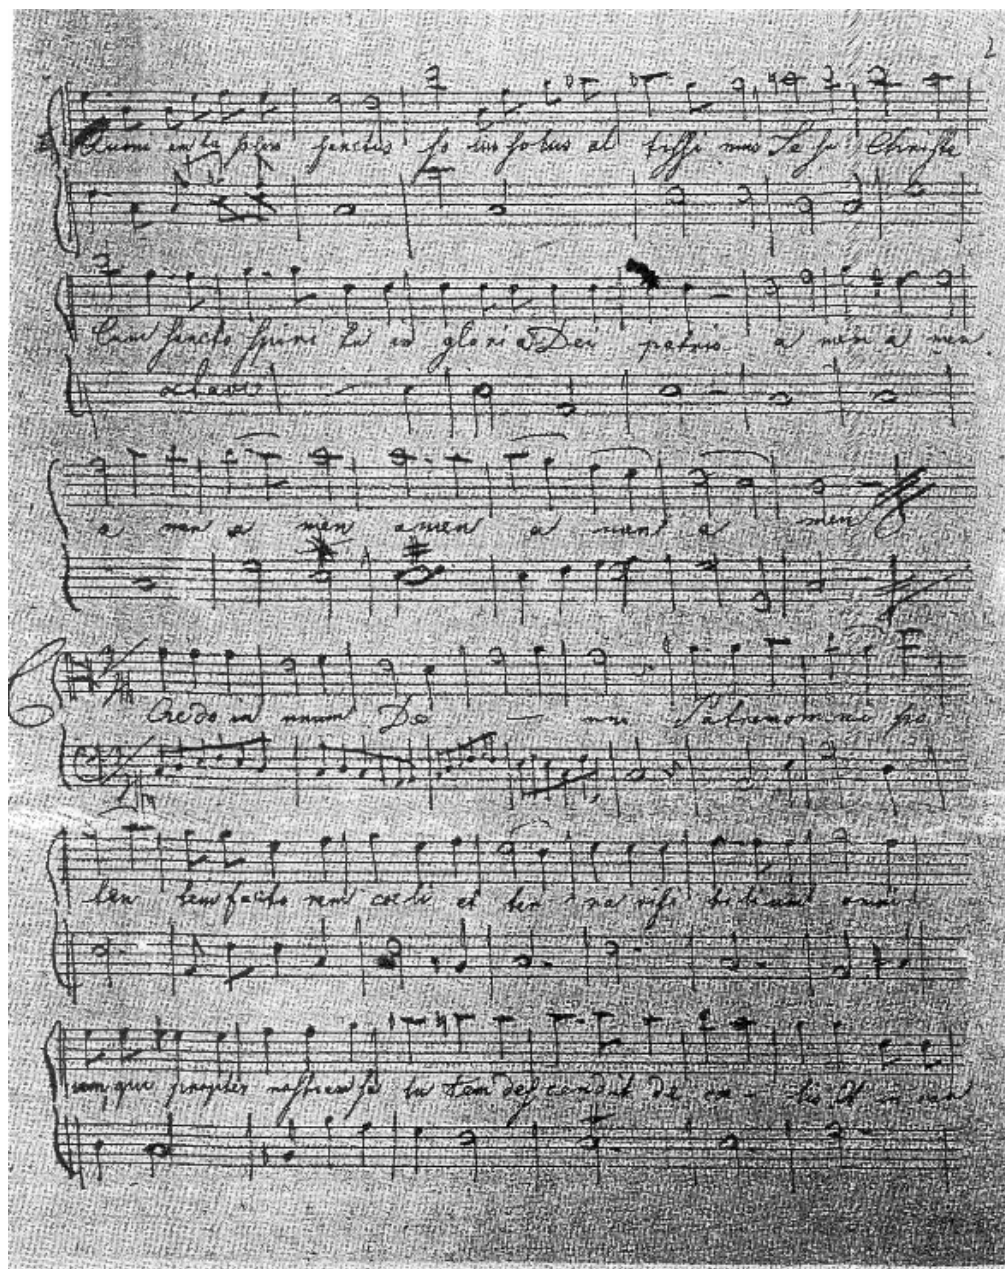 2
Quoni am tu solus sanctus so lus solus al tissi mus Je su Christe
Cum sancto spiri tu in gloria Dei patris a men a men
octava
a men a men amen a men a men
Credo in unum De — um Patrem omni po
ten tem facto rem coeli et ter ra visi bilium omni
um qui propter nostram sa lu tem des cendit de coe - lis Et in car